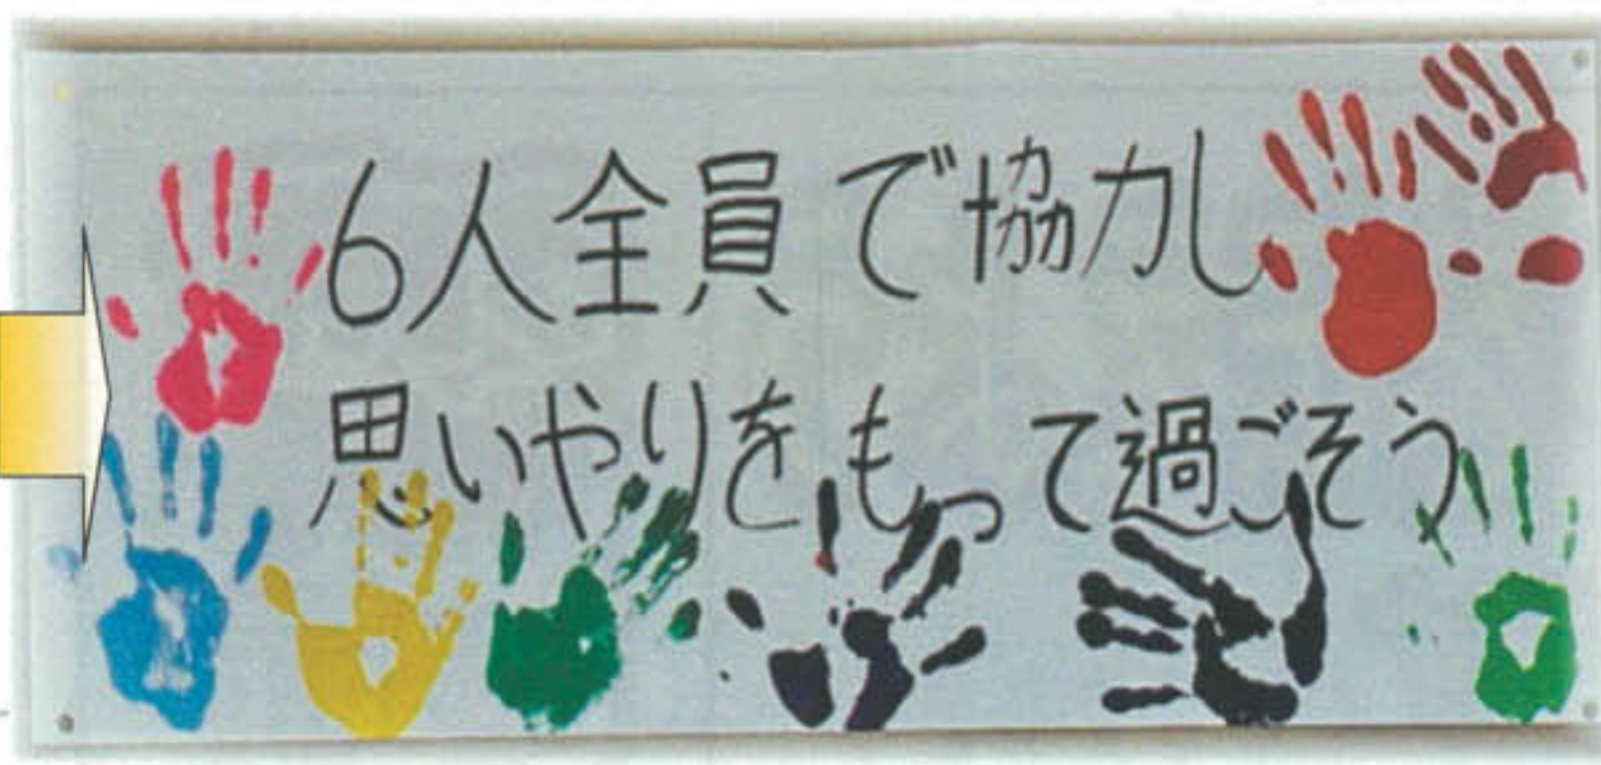 6人全員で協力し
思いやりをもって過ごそう